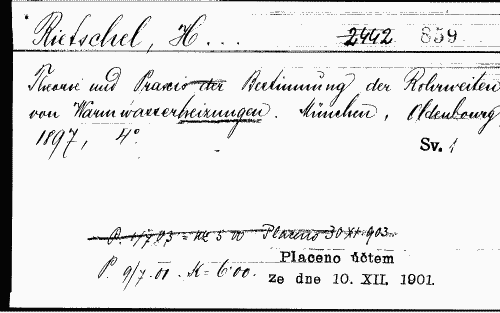 Rietschel, H... 2442 859
Theorie und Praxis der Bestimmung der Rohrweiten
von Warmwasserheizungen. München, Oldenbourg
1897, 4°.
Sv. 1
Placeno 30 XI. 903.
Placeno účtem
P. 9/7. 01. K = 6.00.
ze dne 10. XII. 1901.